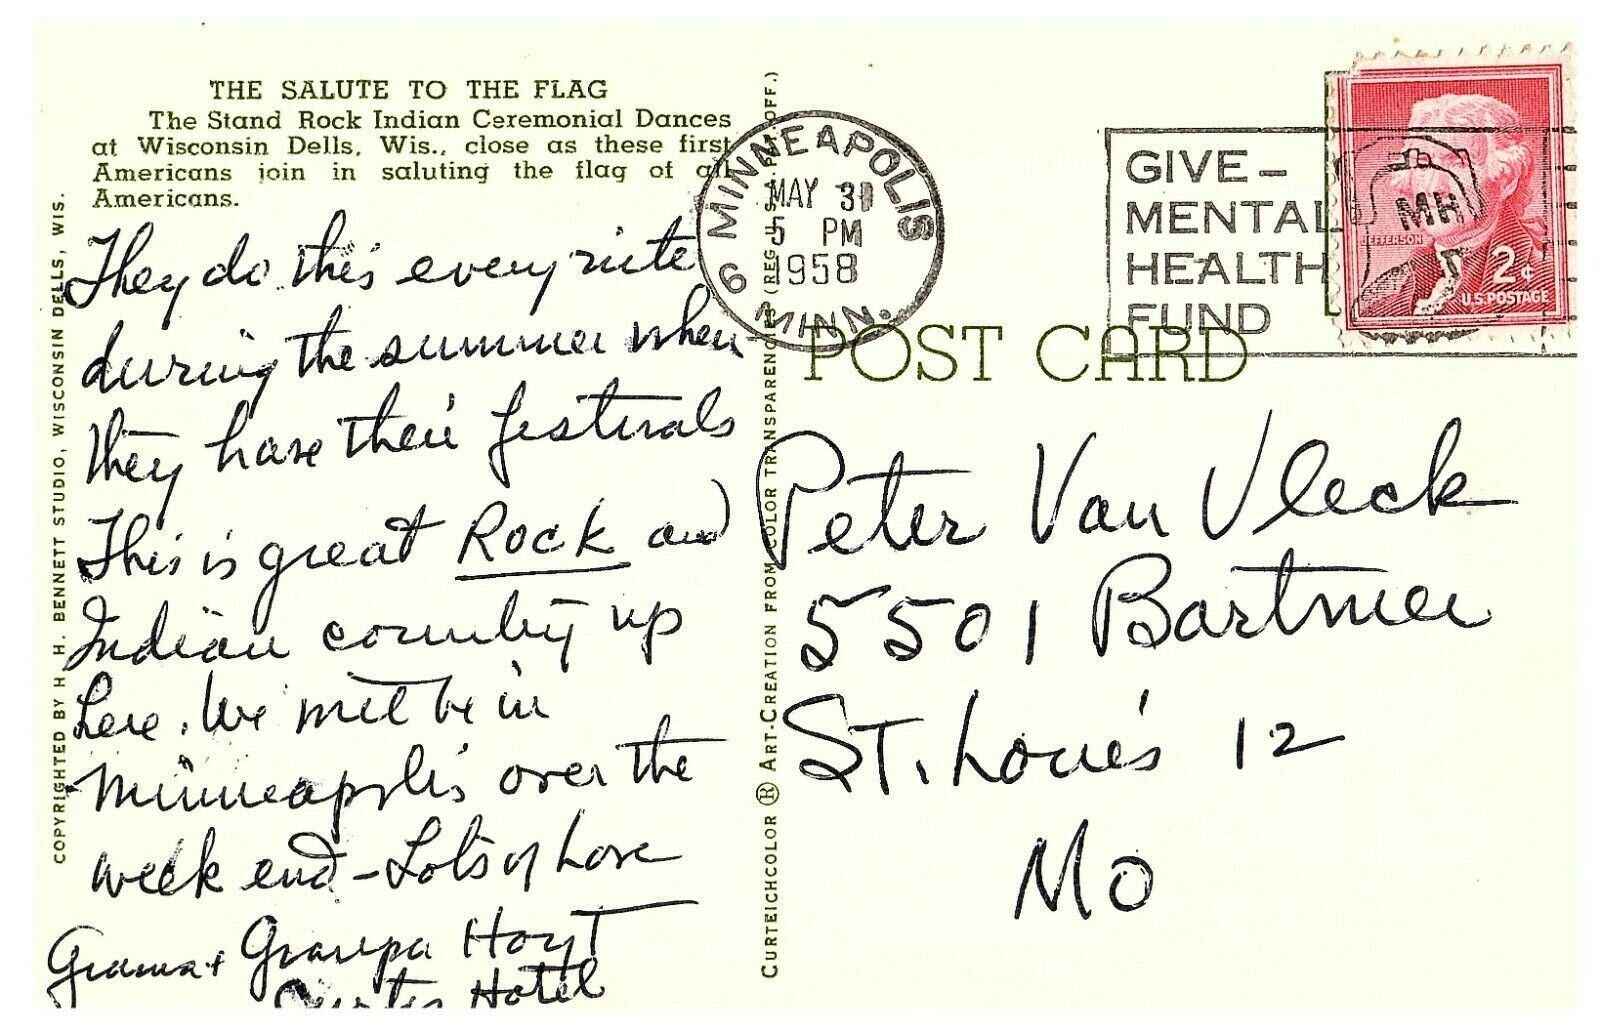 THE SALUTE TO THE FLAG
The Stand Rock Indian Ceremonial Dances
at Wisconsin Dells, Wis., close as these first
Americans join in saluting the flag of all
Americans.
They do this every nite
during the summer when
they have their festivals
This is great Rock and
Indian country up
here. We will be in
Minneapolis over the
week end - Lots of Love
Grama + Grampa Hoyt
Curtis Hotel
COPYRIGHTED BY H. H. BENNETT STUDIO, WISCONSIN DELLS, WIS.
CURTEICHCOLOR ® ART-CREATION FROM COLOR TRANSPARENCIES (REG. U.S.A. PAT. OFF.)
MINNEAPOLIS
MAY 31
5 PM
1958
6 MINN.
GIVE -
MENTAL
HEALTH
FUND
MH
JEFFERSON
2¢
U.S. POSTAGE
POST CARD
Peter Van Vleck
5501 Bartmer
St. Louis 12
Mo